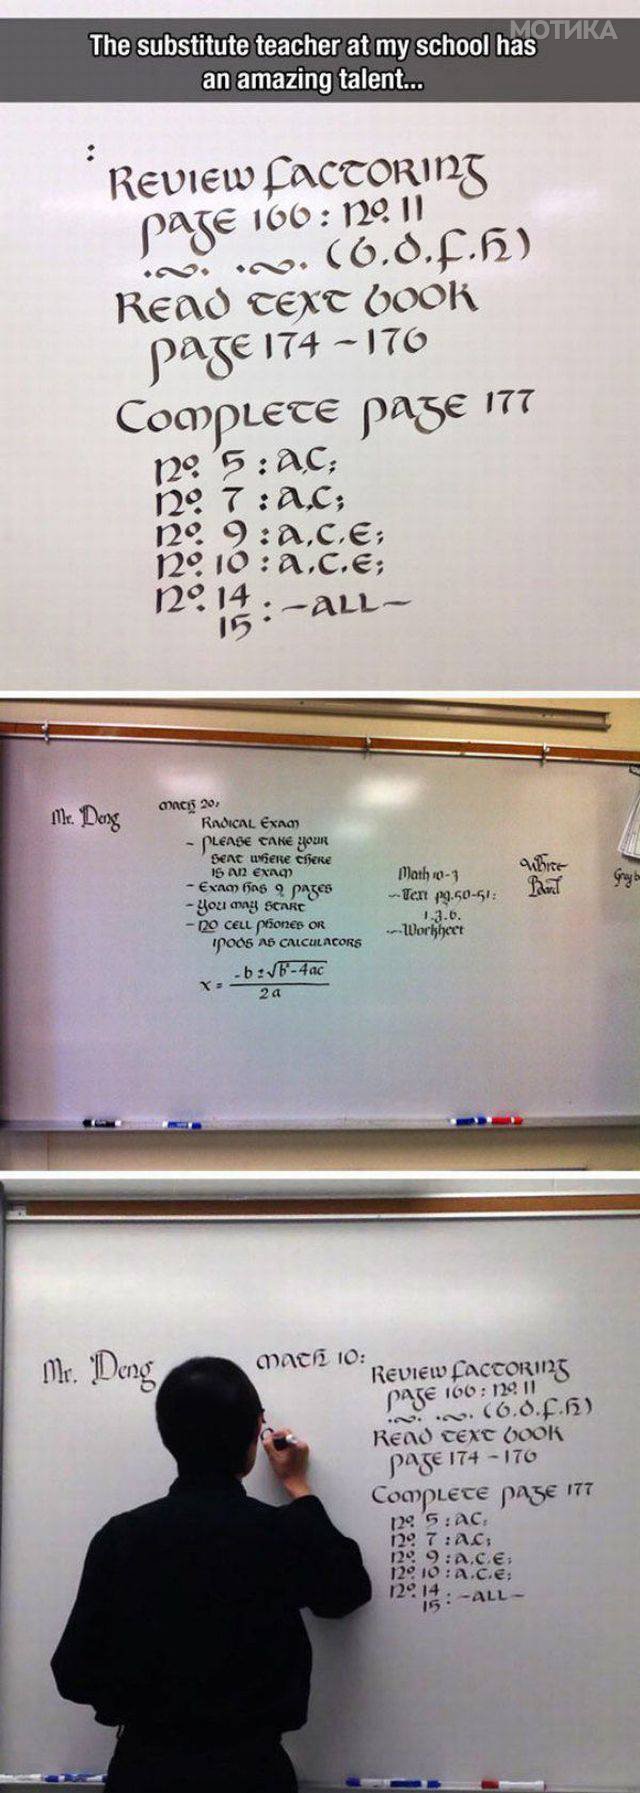 МОТИКА
The substitute teacher at my school has
an amazing talent...
:
Review factoring
page 166 : No. 11
.~. .~. (b.d.f.h)
Read text book
page 174 - 176
Complete page 177
No. 5 : A,C;
No. 7 : A.C;
No. 9 : A.C.E;
No. 10 : A.C.E;
No. 14
15 : -ALL-
Mr. Deng
Math 20:
Radical Exam
- Please take your
seat where there
is an exam
- Exam has 9 pages
- You may start
- No cell phones or
ipods as calculators
x = -b ± √b²-4ac
2a
Math 10-3
- Text pg.50-51:
1.3.6.
- Worksheet
White
Board
Mr. Deng
Math 10:
Review factoring
page 166 : No. 11
.~. .~. (b.d.f.h)
Read text book
page 174 - 176
Complete page 177
No. 5 : A.C;
No. 7 : A.C;
No. 9 : A.C.E;
No. 10 : A.C.E;
No. 14
15 : -ALL-